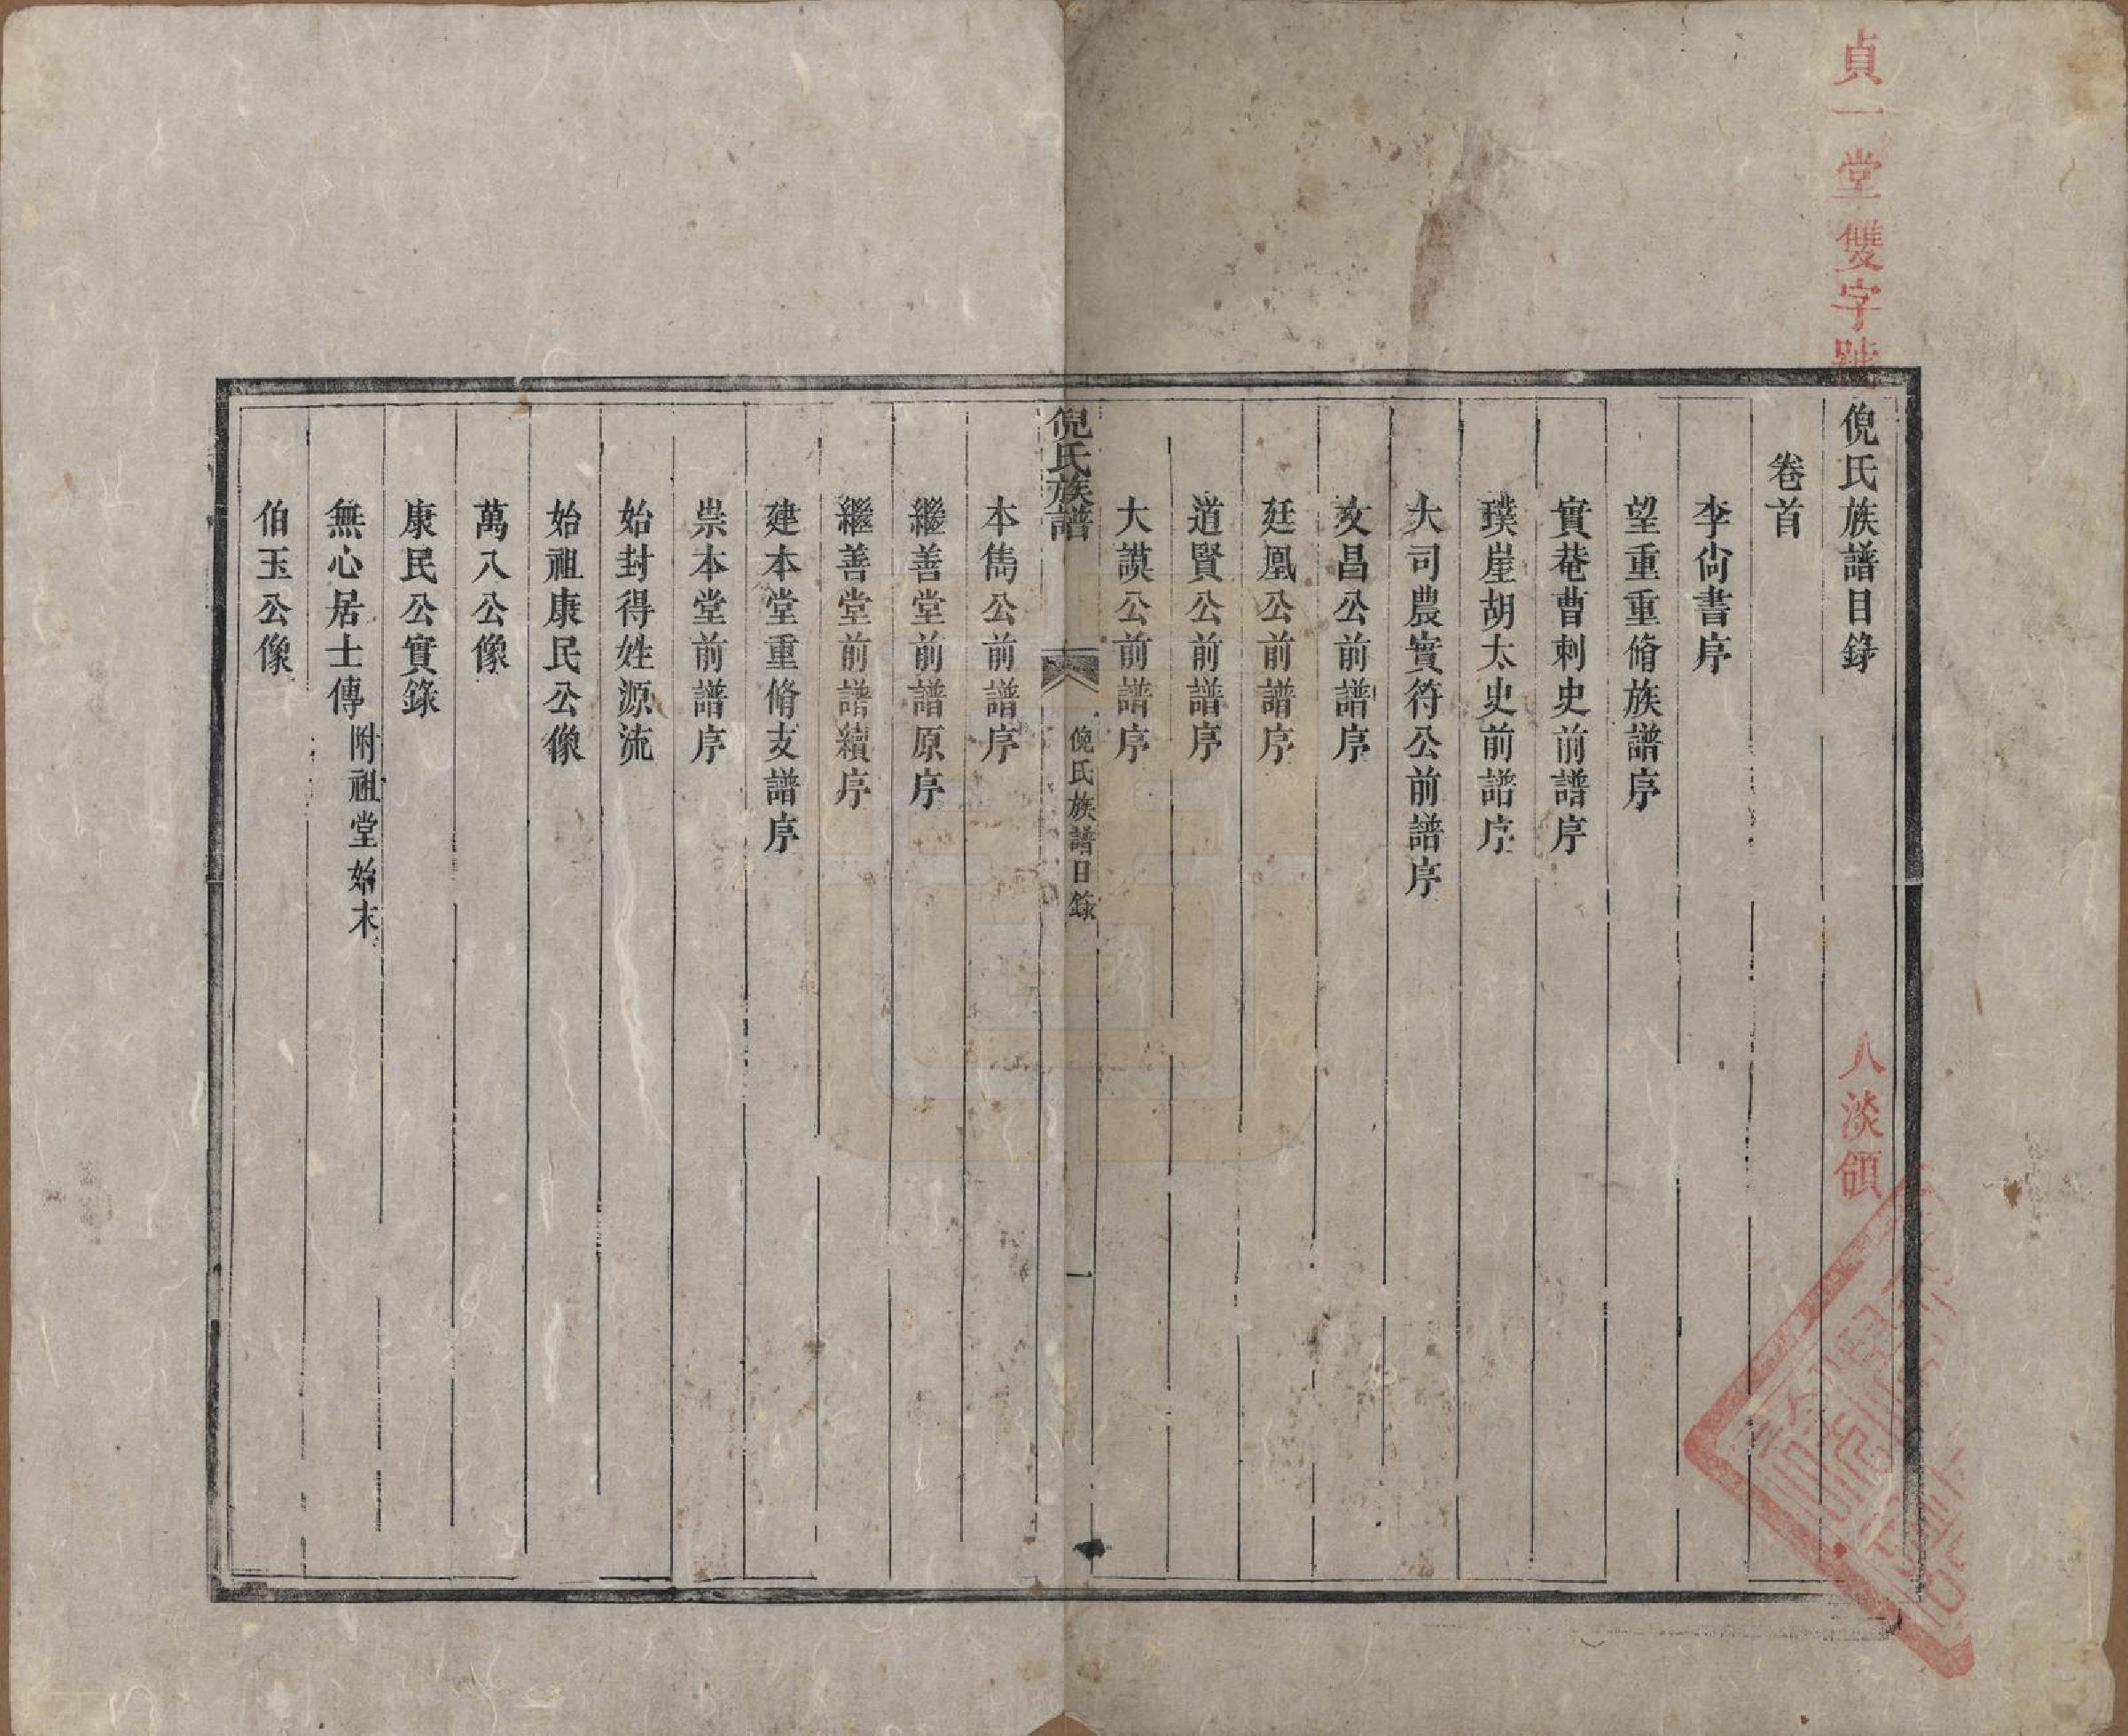 貞一堂雙字號
八淡領
倪氏族譜目錄
卷首
李尙書序
望重重脩族譜序
實菴曹刺史前譜序
璞崖胡太史前譜序
大司農實符公前譜序
文昌公前譜序
廷凰公前譜序
道賢公前譜序
大謨公前譜序
倪氏族譜
倪氏族譜目錄
一
本雋公前譜序
繼善堂前譜原序
繼善堂前譜續序
建本堂重脩支譜序
崇本堂前譜序
始封得姓源流
始祖康民公像
萬八公像
康民公實錄
無心居士傳附祖堂始末
伯玉公像